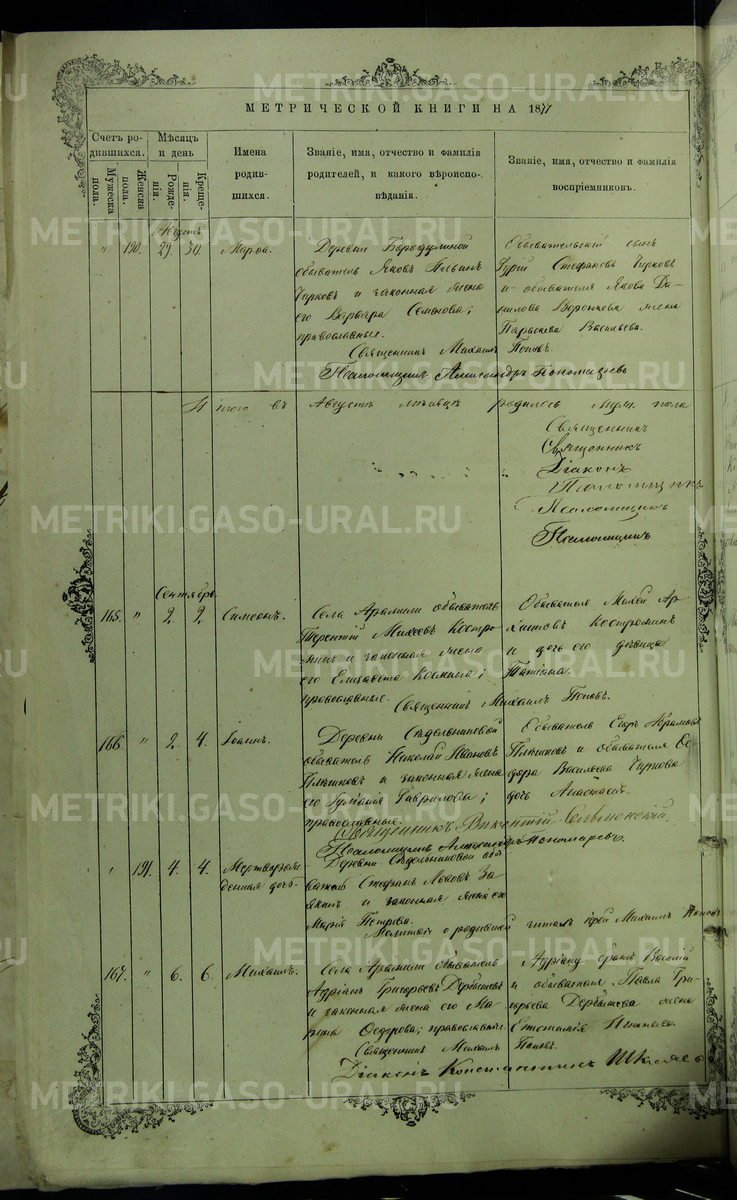 МЕТРИЧЕСКОЙ КНИГИ НА 1871
Счетъ родившихся.
Мужеска пола.
Женска пола.
Мѣсяцъ и день
Рожденія.
Крещенія.
Имена родившихся.
Званіе, имя, отчество и фамилія родителей, и какого вѣроисповѣданія.
Званіе, имя, отчество и фамилія воспріемниковъ.
Августъ.
" 190. 29. 30. Марѳа.
Деревни
обыватель Яковъ
Чирковъ и законная жена
его Варвара Семенова;
православные.
Обывательскій сынъ
Гурій Стефановъ Чирковъ
и обывателя Якова Да-
нилова Воронкова жена
Параскева Васильева.
Священникъ Михаилъ Поповъ.
Псаломщикъ Александръ Пономаревъ
Итого въ Августѣ мѣсяцѣ родилось муж. пола
Священникъ
Священникъ
Діаконъ
Псаломщикъ
Псаломщикъ
Псаломщикъ
Сентябрь.
165. " 2. 2. Симеонъ.
Села Арамили обыватель
Терентій Михеевъ Костро-
минъ и законная жена
его Елизавета Козмина;
православные.
Обыватель Михей Ар-
хиповъ Костроминъ
и дочь его дѣвица
Татіана.
Священникъ Михаилъ Поповъ.
166 " 2. 4. Іоаннъ.
Деревни Сѣдельниковой
обыватель Николай Ивановъ
Плѣшковъ и законная жена
его Гаврилова;
православные.
Обыватель Егоръ Абрамовъ
Плѣшковъ и обывателя Ѳе-
дора Васильева Чиркова
дочь Анастасія.
Священникъ Викентій
Псаломщикъ Александръ Пономаревъ.
" 191. 4. 4. Мертворож-
денная дочь.
Деревни Сѣдельниковой обы-
ватель Стефанъ Львовъ За-
якинъ и законная жена его
Марія Петрова.
Молитвы о родившей читалъ іерей Михаилъ Поповъ
167. " 6. 6. Михаилъ.
Села Арамили обыватель
Адріанъ Григорьевъ Дерябинъ
и законная жена его Ма-
рина Ѳедорова; православные.
Адріану братъ Василій
и обывателя Павла Гри-
горьева жена
Игнатьева.
Священникъ Михаилъ Поповъ.
Діаконъ Константинъ
METRIKI.GASO-URAL.RU